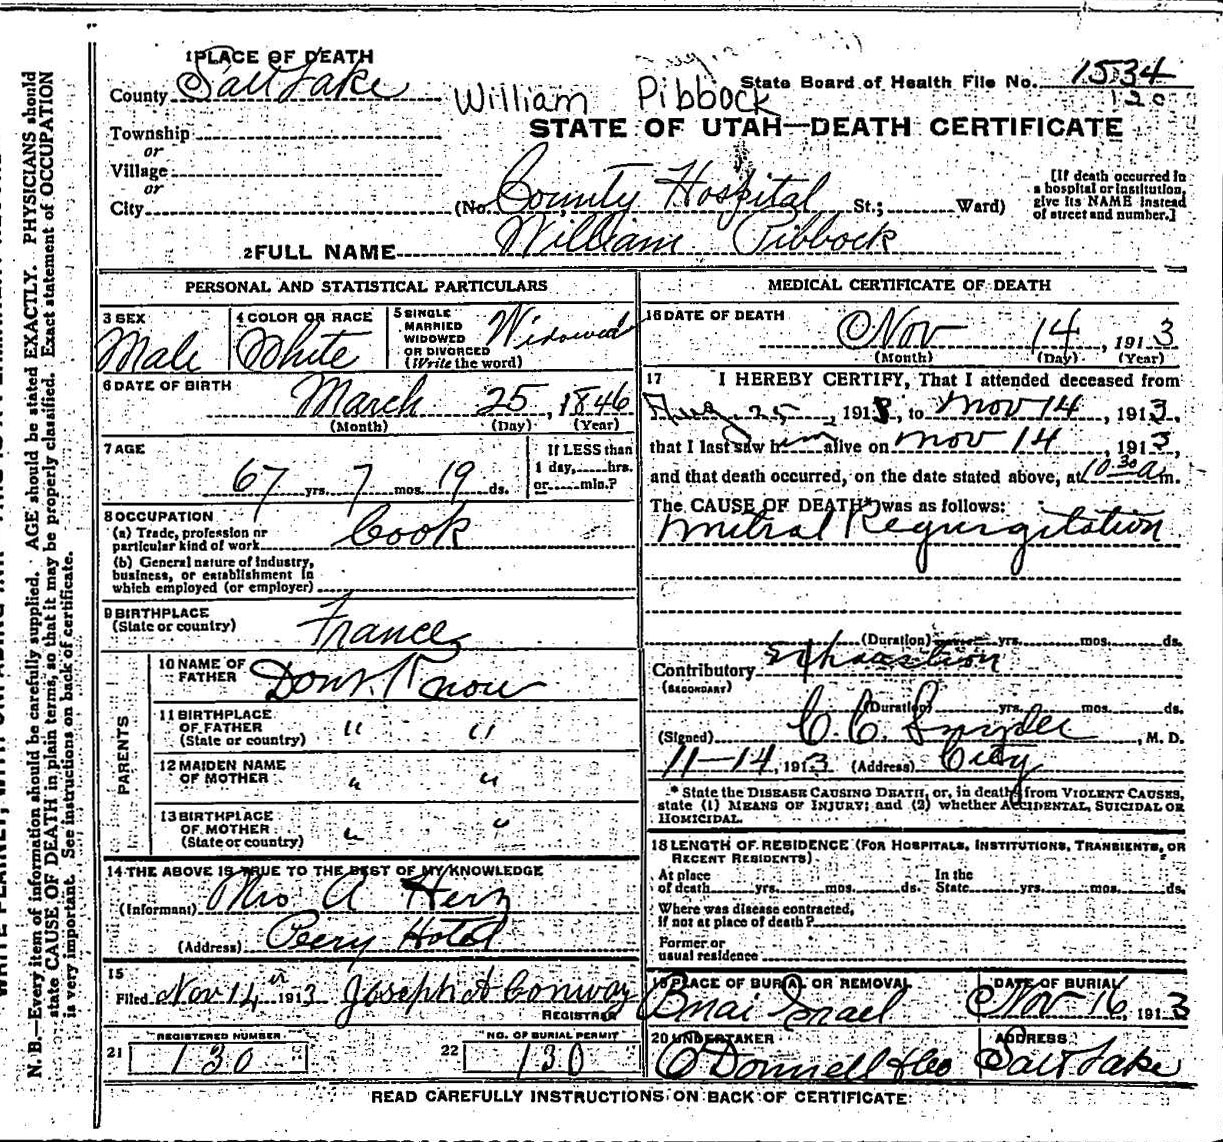 1 PLACE OF DEATH
County Salt Lake
William Pibbock
State Board of Health File No. 1534
120
STATE OF UTAH—DEATH CERTIFICATE
Township
or
Village
or
City
(No. County Hospital St.; Ward)
[If death occurred in a hospital or institution, give its NAME instead of street and number.]
2 FULL NAME William Pibbock
PERSONAL AND STATISTICAL PARTICULARS
3 SEX
Male
4 COLOR OR RACE
White
5 SINGLE
MARRIED
WIDOWED
OR DIVORCED
(Write the word)
Widowed
6 DATE OF BIRTH
March 25, 1846
(Month) (Day) (Year)
7 AGE
67 yrs. 7 mos. 19 ds.
If LESS than
1 day, hrs.
or min.?
8 OCCUPATION
(a) Trade, profession or
particular kind of work Cook
(b) General nature of industry,
business, or establishment in
which employed (or employer)
9 BIRTHPLACE
(State or country) France
PARENTS
10 NAME OF
FATHER Dont Know
11 BIRTHPLACE
OF FATHER
(State or country) " "
12 MAIDEN NAME
OF MOTHER " "
13 BIRTHPLACE
OF MOTHER
(State or country) " "
14 THE ABOVE IS TRUE TO THE BEST OF MY KNOWLEDGE
(Informant) Mrs A Herz
(Address) Peery Hotel
15
Filed Nov 14 1913 Joseph A Conway
REGISTRAR
21 REGISTERED NUMBER
130
22 NO. OF BURIAL PERMIT
130
MEDICAL CERTIFICATE OF DEATH
16 DATE OF DEATH
Nov 14, 1913
(Month) (Day) (Year)
17 I HEREBY CERTIFY, That I attended deceased from
Aug. 25, 1913, to Nov 14, 1913,
that I last saw him alive on Nov 14, 1913,
and that death occurred, on the date stated above, at 10 30 a m.
The CAUSE OF DEATH* was as follows:
Mitral Regurgitation
(Duration) yrs. mos. ds.
Contributory Exhaustion
(SECONDARY)
(Duration) yrs. mos. ds.
(Signed) C. C. Snyder, M. D.
11-14, 1913 (Address) City
* State the DISEASE CAUSING DEATH, or, in deaths from VIOLENT CAUSES,
state (1) MEANS OF INJURY; and (2) whether ACCIDENTAL, SUICIDAL OR
HOMICIDAL.
18 LENGTH OF RESIDENCE (FOR HOSPITALS, INSTITUTIONS, TRANSIENTS, OR
RECENT RESIDENTS).
At place
of death yrs. mos. ds.
In the
State yrs. mos. ds.
Where was disease contracted,
if not at place of death?
Former or
usual residence
19 PLACE OF BURIAL OR REMOVAL
Bnai Israel
DATE OF BURIAL
Nov-16, 1913
20 UNDERTAKER
O'Donnell & Co
ADDRESS
Salt Lake
READ CAREFULLY INSTRUCTIONS ON BACK OF CERTIFICATE
N. B.—Every item of information should be carefully supplied. AGE should be stated EXACTLY. PHYSICIANS should
state CAUSE OF DEATH in plain terms, so that it may be properly classified. Exact statement of OCCUPATION
is very important. See instructions on back of certificate.